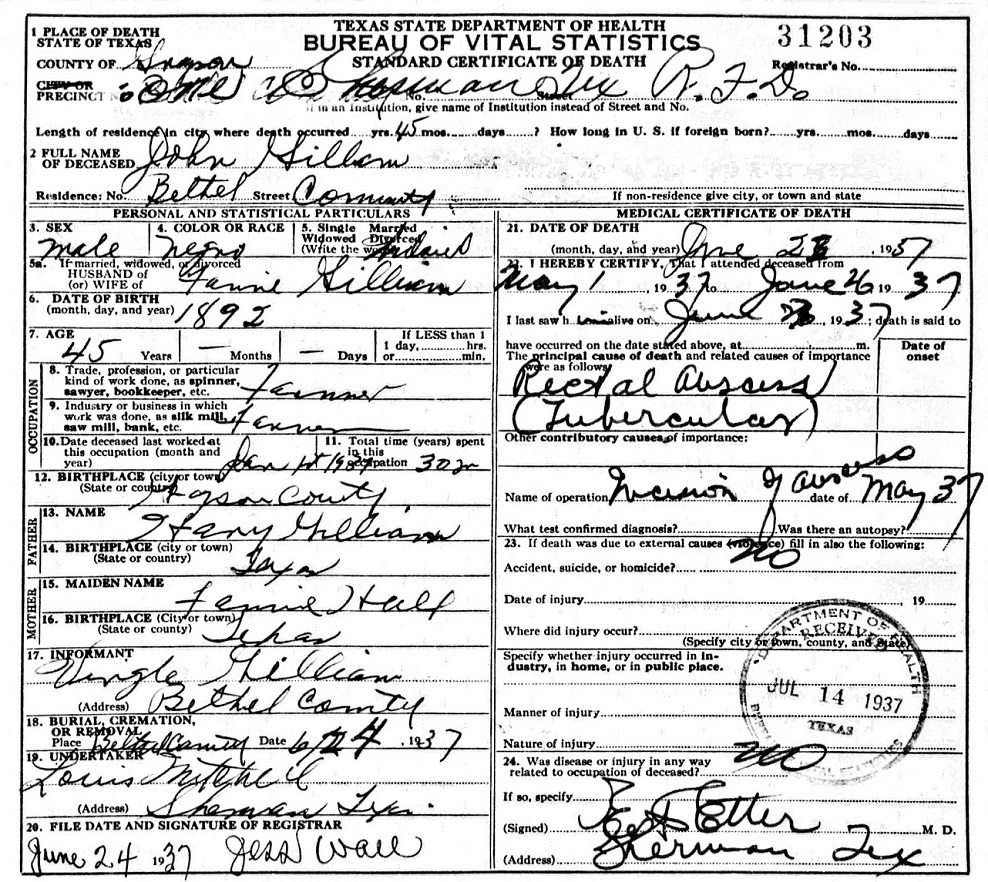 TEXAS STATE DEPARTMENT OF HEALTH
BUREAU OF VITAL STATISTICS
STANDARD CERTIFICATE OF DEATH
31203
Registrar's No.
1 PLACE OF DEATH
STATE OF TEXAS
COUNTY OF Grayson
CITY OR
PRECINCT No. One Sherman Tex R.F.D.
No. Street
If in an Institution, give name of Institution instead of Street and No.
Length of residence in city where death occurred yrs. 45 mos. days ? How long in U. S. if foreign born? yrs. mos. days
2 FULL NAME
OF DECEASED John Gilliam
Residence: No. Bethel Street Comunty If non-residence give city, or town and state
PERSONAL AND STATISTICAL PARTICULARS
3. SEX male
4. COLOR OR RACE negro
5. Single Married
Widowed Divorced
(Write the word)
5a. If married, widowed, or divorced
HUSBAND of
(or) WIFE of Fannie Gilliam
6. DATE OF BIRTH
(month, day, and year) 1892
7. AGE
45 Years — Months — Days
If LESS than 1
1 day, hrs.
or min.
OCCUPATION
8. Trade, profession, or particular
kind of work done, as spinner,
sawyer, bookkeeper, etc. Farmer
9. Industry or business in which
work was done, as silk mill,
saw mill, bank, etc. Farmer
10. Date deceased last worked at
this occupation (month and
year) Jan 1st 1937
11. Total time (years) spent
in this
occupation 30
12. BIRTHPLACE (city or town)
(State or country) Grayson County
FATHER
13. NAME Gilliam
14. BIRTHPLACE (city or town)
(State or country) Texas
MOTHER
15. MAIDEN NAME Fannie Hall
16. BIRTHPLACE (City or town)
(State or county) Texas
17. INFORMANT Gilliam
(Address) Bethel Comty
18. BURIAL, CREMATION,
OR REMOVAL
Place Bethel Date 6/24 1937
19. UNDERTAKER
Louis Mitchell
(Address) Sherman Tex.
20. FILE DATE AND SIGNATURE OF REGISTRAR
June 24 1937 Jess Wall
MEDICAL CERTIFICATE OF DEATH
21. DATE OF DEATH
(month, day, and year) June 1937
22. I HEREBY CERTIFY, That I attended deceased from
May 1, 1937 to June 1937
I last saw h im alive on June, 1937; death is said to
have occurred on the date stated above, at m.
The principal cause of death and related causes of importance
were as follows:
Date of
onset
Rectal Abscess
(Tubercular)
Other contributory causes of importance:
Name of operation Incision of abscess date of May 37
What test confirmed diagnosis? Was there an autopsy?
23. If death was due to external causes (violence) fill in also the following:
Accident, suicide, or homicide? no
Date of injury 19
Where did injury occur?
(Specify city or town, county, and State)
Specify whether injury occurred in in-
dustry, in home, or in public place.
Manner of injury
Nature of injury
24. Was disease or injury in any way
related to occupation of deceased? no
If so, specify
(Signed) Etter M. D.
(Address) Sherman Tex
DEPARTMENT OF HEALTH
RECEIVED
JUL 14 1937
TEXAS